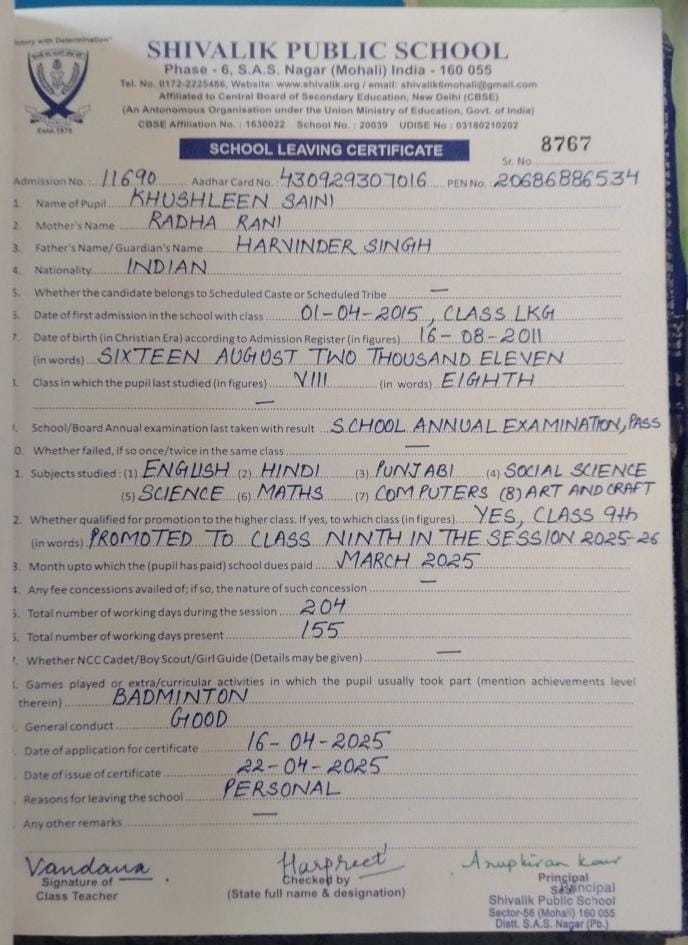 "tory with Determination"
SHIVALIK PUBLIC SCHOOL
Phase - 6, S.A.S. Nagar (Mohali) India - 160 055
Tel. No. 0172-2225486, Website: www.shivalik.org / email: shivalik6mohali@gmail.com
Affiliated to Central Board of Secondary Education, New Delhi (CBSE)
(An Antonomous Organisation under the Union Ministry of Education, Govt. of India)
CBSE Affiliation No. : 1630022 School No. : 20039 UDISE No : 03180210202
Estd. 1970
SCHOOL LEAVING CERTIFICATE
Sr. No. 8767
Admission No. : 11690 Aadhar Card No. : 430929307016 PEN No. : 20686886534
1. Name of Pupil KHUSHLEEN SAINI
2. Mother's Name RADHA RANI
3. Father's Name/ Guardian's Name HARVINDER SINGH
4. Nationality INDIAN
5. Whether the candidate belongs to Scheduled Caste or Scheduled Tribe —
6. Date of first admission in the school with class 01-04-2015, CLASS LKG
7. Date of birth (in Christian Era) according to Admission Register (in figures) 16-08-2011
(in words) SIXTEEN AUGUST TWO THOUSAND ELEVEN
Class in which the pupil last studied (in figures) VIII (in words) EIGHTH
—
School/Board Annual examination last taken with result SCHOOL ANNUAL EXAMINATION, PASS
0. Whether failed, if so once/twice in the same class —
1. Subjects studied : (1) ENGLISH (2) HINDI (3) PUNJABI (4) SOCIAL SCIENCE
(5) SCIENCE (6) MATHS (7) COMPUTERS (8) ART AND CRAFT
2. Whether qualified for promotion to the higher class. If yes, to which class (in figures) YES, CLASS 9th
(in words) PROMOTED TO CLASS NINTH IN THE SESSION 2025-26
3. Month upto which the (pupil has paid) school dues paid MARCH 2025
4. Any fee concessions availed of; if so, the nature of such concession —
5. Total number of working days during the session 204
Total number of working days present 155
Whether NCC Cadet/Boy Scout/Girl Guide (Details may be given) —
Games played or extra/curricular activities in which the pupil usually took part (mention achievements level
therein) BADMINTON
General conduct GOOD
Date of application for certificate 16-04-2025
Date of issue of certificate 22-04-2025
Reasons for leaving the school PERSONAL
Any other remarks —
Vandana Harpreet Anupkiran Kaur
Signature of Class Teacher
Checked by
(State full name & designation)
Principal
Seal
Principal
Shivalik Public School
Sector-56 (Mohali) 160 055
Distt. S.A.S. Nagar (Pb.)